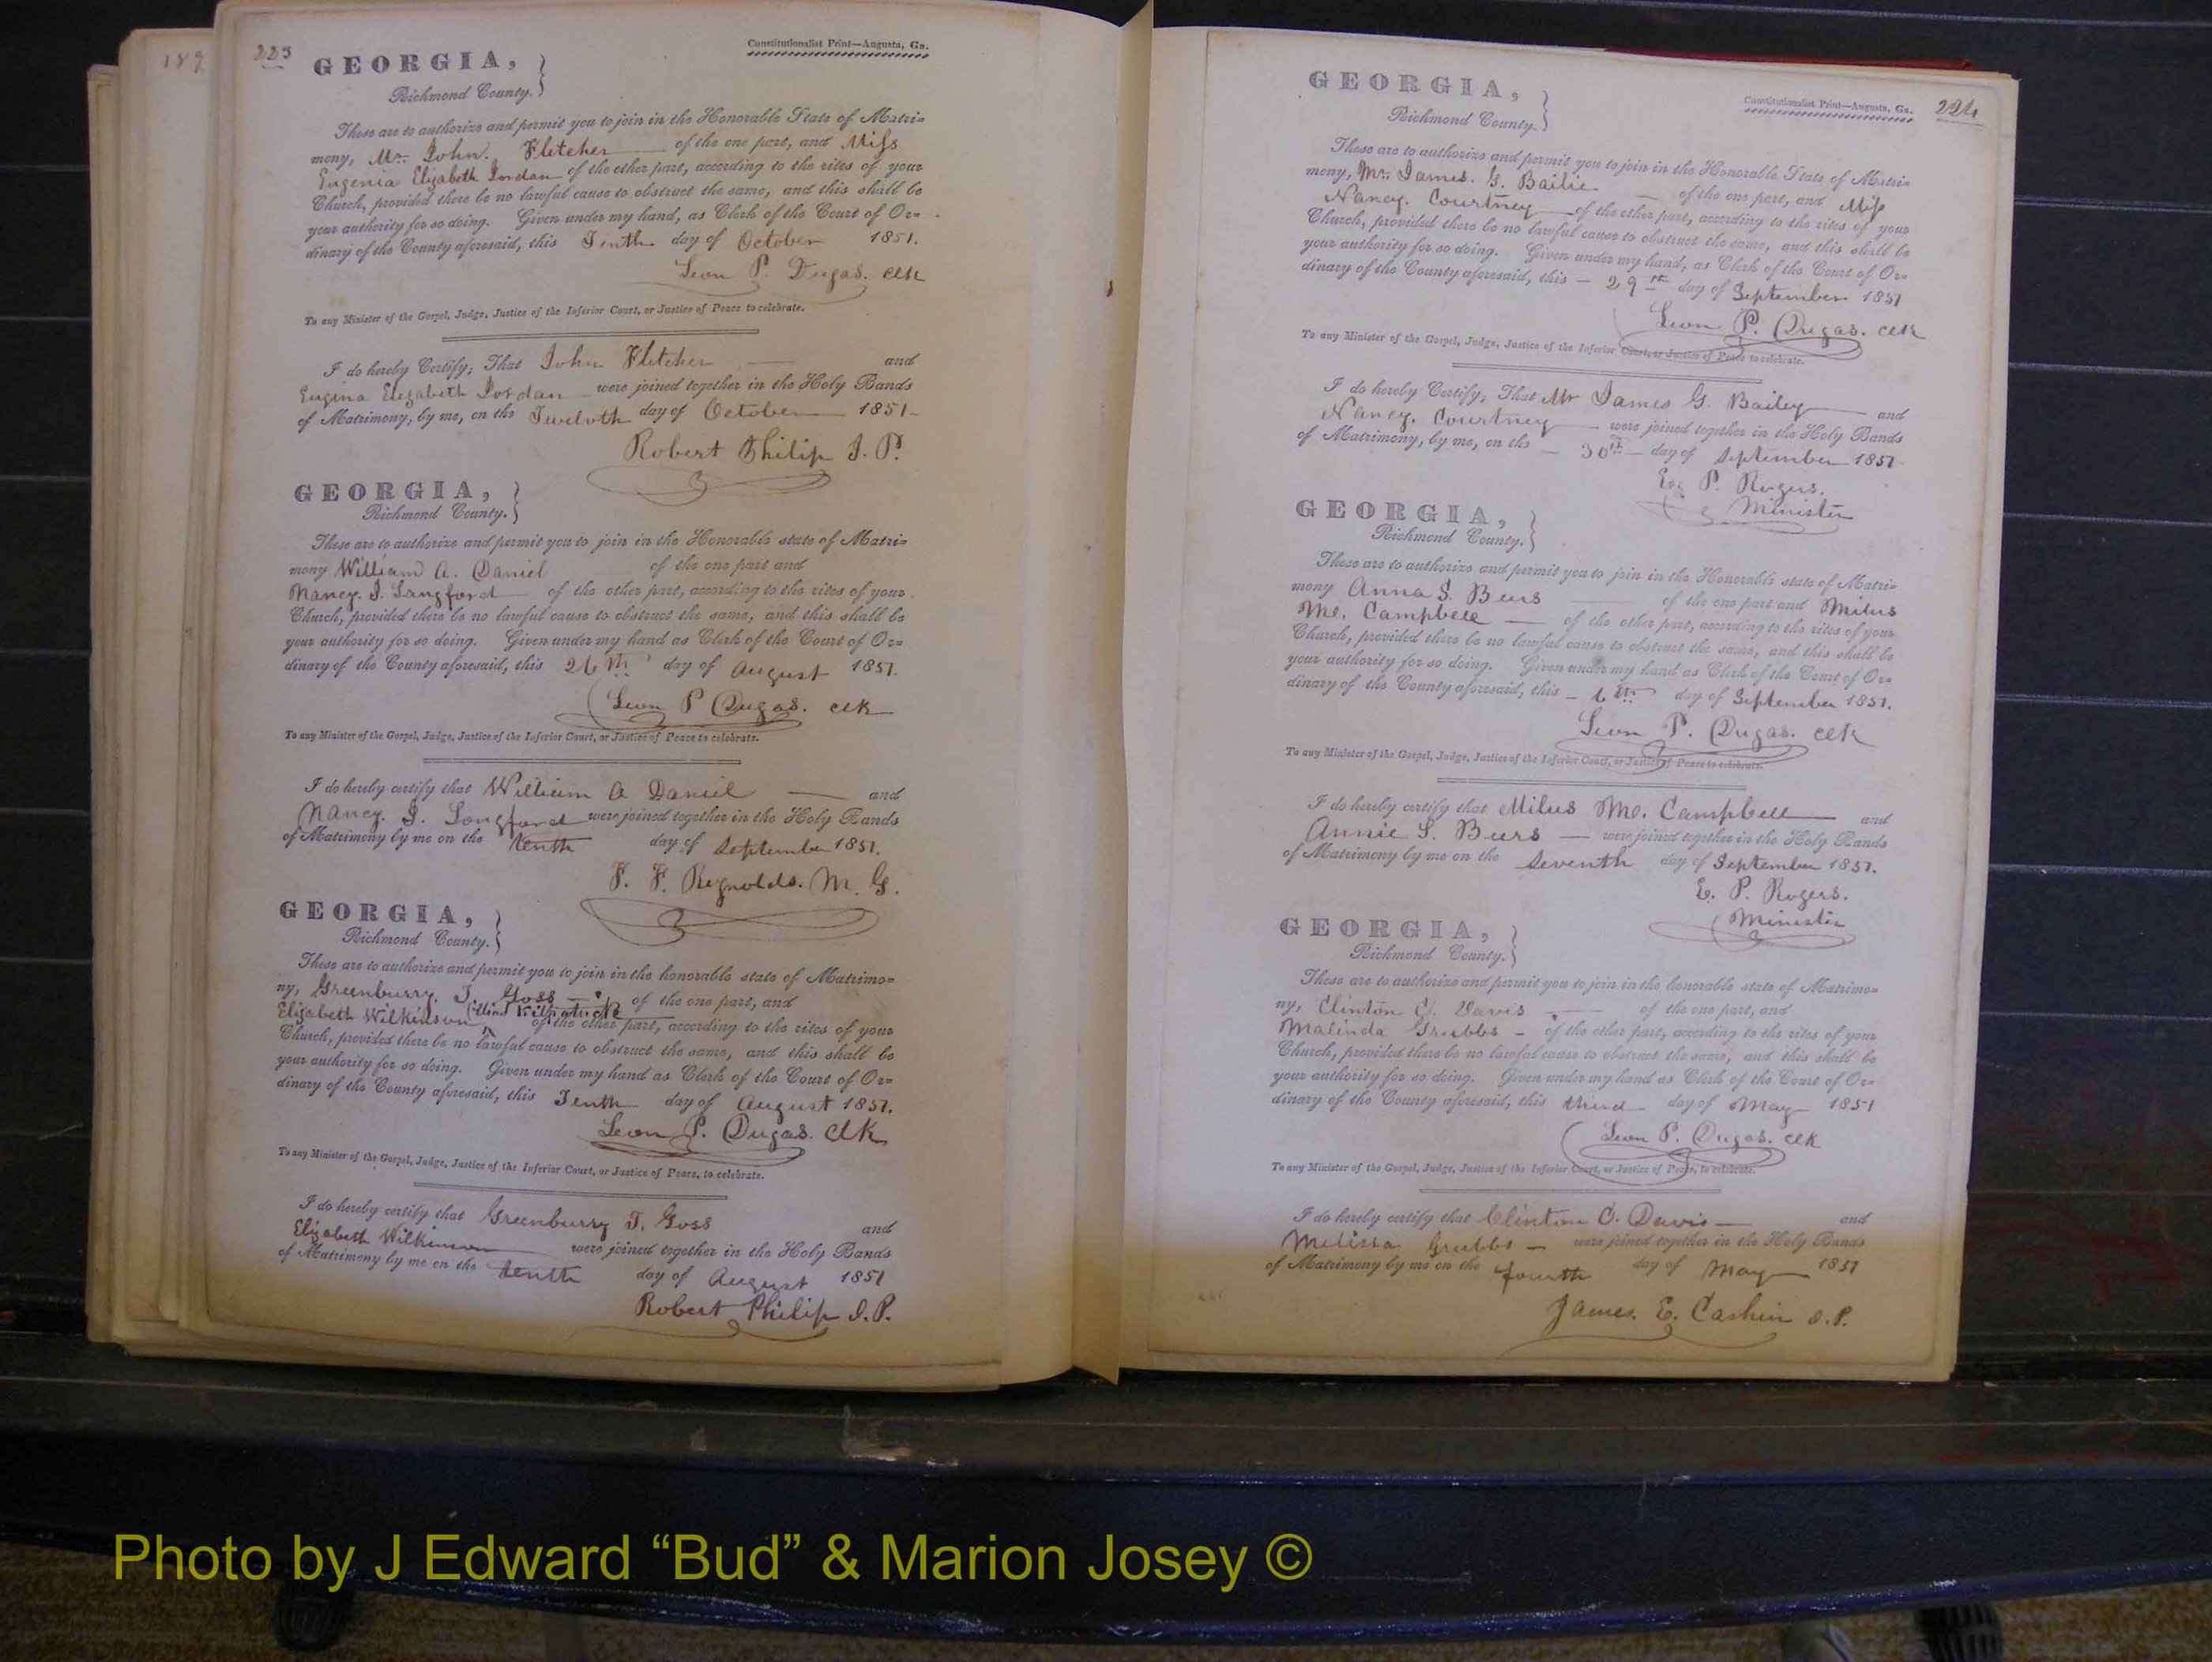 189
223
Constitutionalist Print—Augusta, Ga.
GEORGIA,
Richmond County.
These are to authorize and permit you to join in the Honorable State of Matri=
mony, Mr. John. Fletcher of the one part, and Miss
Eugenia Elizabeth Jordan of the other part, according to the rites of your
Church, provided there be no lawful cause to obstruct the same, and this shall be
your authority for so doing. Given under my hand, as Clerk of the Court of Or=
dinary of the County aforesaid, this Tenth day of October 1851.
Leon P. Dugas. Clk
To any Minister of the Gospel, Judge, Justice of the Inferior Court, or Justice of Peace to celebrate.
I do hereby Certify, That John Fletcher and
Eugina Elezabeth Jordan were joined together in the Holy Bands
of Matrimony, by me, on the Twelvth day of October 1851
Robert Philip J. P.
GEORGIA,
Richmond County.
These are to authorize and permit you to join in the Honorable state of Matri=
mony William A. Daniel of the one part and
Nancy. J. Langford of the other part, according to the rites of your
Church, provided there be no lawful cause to obstruct the same, and this shall be
your authority for so doing. Given under my hand as Clerk of the Court of Or=
dinary of the County aforesaid, this 26th day of August 1851.
Leon P Dugas. Clk
To any Minister of the Gospel, Judge, Justice of the Inferior Court, or Justice of Peace to celebrate.
I do hereby certify that William A Daniel and
Nancy. J. Longford were joined together in the Holy Bands
of Matrimony by me on the tenth day of September 1851.
F. F. Reynolds. M. G.
GEORGIA,
Richmond County.
These are to authorize and permit you to join in the honorable state of Matrimo=
ny, Greenburry. T. Goss of the one part, and
Elizabeth Wilkinson Kilpatrick of the other part, according to the rites of your
Church, provided there be no lawful cause to obstruct the same, and this shall be
your authority for so doing. Given under my hand as Clerk of the Court of Or=
dinary of the County aforesaid, this Tenth day of August 1851.
Leon P. Dugas. Clk
To any Minister of the Gospel, Judge, Justice of the Inferior Court, or Justice of Peace, to celebrate.
I do hereby certify that Greenburry T. Goss and
Elizabeth Wilkinson were joined together in the Holy Bands
of Matrimony by me on the tenth day of August 1851
Robert Philip J. P.
GEORGIA,
Constitutionalist Print—Augusta, Ga.
224
Richmond County.
These are to authorize and permit you to join in the Honorable State of Matri=
mony, Mr. James. G. Bailie of the one part, and Miss
Nancy. Courtney of the other part, according to the rites of your
Church, provided there be no lawful cause to obstruct the same, and this shall be
your authority for so doing. Given under my hand, as Clerk of the Court of Or=
dinary of the County aforesaid, this 29th day of September 1851
Leon P. Dugas. Clk
To any Minister of the Gospel, Judge, Justice of the Inferior Court, or Justice of Peace to celebrate.
I do hereby Certify, That Mr James G. Bailey and
Nancy. Courtney were joined together in the Holy Bands
of Matrimony, by me, on the 30th day of September 1851
P. Rogers.
Minister
GEORGIA,
Richmond County.
These are to authorize and permit you to join in the Honorable state of Matri=
mony Anna S. Beers of the one part and Milus
Mc. Campbell of the other part, according to the rites of your
Church, provided there be no lawful cause to obstruct the same, and this shall be
your authority for so doing. Given under my hand as Clerk of the Court of Or=
dinary of the County aforesaid, this 6th day of September 1851.
Leon P. Dugas. Clk
To any Minister of the Gospel, Judge, Justice of the Inferior Court, or Justice of Peace to celebrate.
I do hereby certify that Milus Mc. Campbell and
Annie S. Beers were joined together in the Holy Bands
of Matrimony by me on the Seventh day of September 1851.
E. P. Rogers.
Minister
GEORGIA,
Richmond County.
These are to authorize and permit you to join in the honorable state of Matrimo=
ny, Clinton C. Davis of the one part, and
Malinda Grubbs of the other part, according to the rites of your
Church, provided there be no lawful cause to obstruct the same, and this shall be
your authority for so doing. Given under my hand as Clerk of the Court of Or=
dinary of the County aforesaid, this third day of May 1851
Leon P. Dugas. Clk
To any Minister of the Gospel, Judge, Justice of the Inferior Court, or Justice of Peace, to celebrate.
I do hereby certify that Clinton C. Davis and
Melissa Grubbs were joined together in the Holy Bands
of Matrimony by me on the fourth day of May 1851
James. E. Cashin J. P.
Photo by J Edward “Bud” & Marion Josey ©